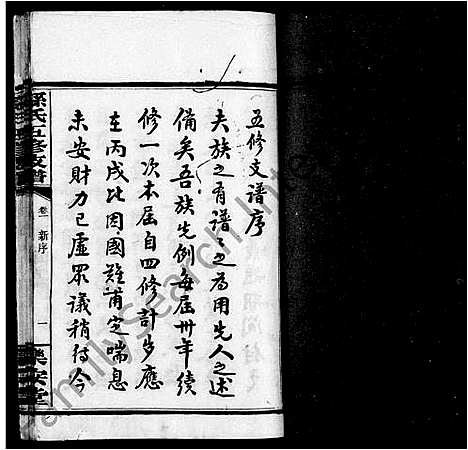 五修支譜序
夫族之有譜譜之為用先人之述
備矣吾族先例每屆卅年續
修一次本屆自四修計歲應
在丙戌比因國難甫定喘息
未安財力已虛眾議稍待今
孫氏五修支譜
卷一 新序
一
樂安堂
FamilySearch Int